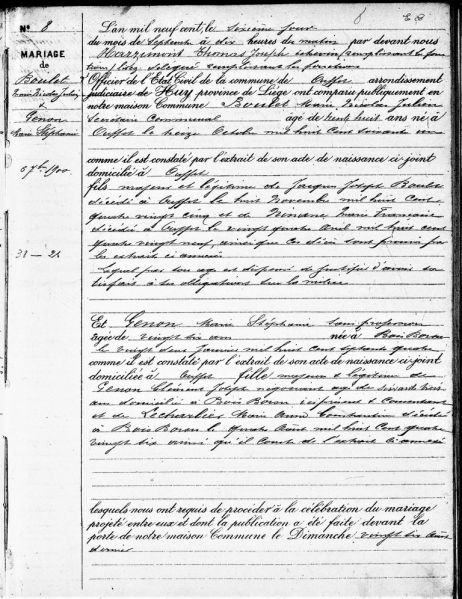 N° 8
MARIAGE
de
Boulet
Marie Nicolas Julien
&
Genon
Marie Stéphanie
6 7bre 1900
38 — 26
L'an mil neuf cent, le sixième jour
du mois de Septembre à dix heures du matin par devant nous
Hazzimont Thomas Joseph échevin, remplissant les
Officier de l'Etat Civil de la commune de Ouffet arrondissement
judiciaire de Huy province de Liége ont comparu publiquement en
notre maison Commune Boulet Marie Nicolas Julien
Secrétaire Communal âgé de trente huit ans né à
Ouffet le treize Octobre mil huit cent soixante un
comme il est constaté par l'extrait de son acte de naissance ci-joint
domicilié à Ouffet
fils majeur et légitime de Jacques Joseph Boulet
décédé à Ouffet le huit Novembre mil huit cent
quatre vingt cinq et de Marie Françoise
décédée à Ouffet le vingt quatre Avril mil huit cent
quatre vingt neuf, ainsi que ces décès sont prouvés par
les extraits ci annexés
Lequel par son âge est dispensé de justifier d'avoir sa-
tisfait à ses obligations sur la milice.
Et Genon Marie Stéphanie sans profession
âgée de vingt six ans née à Bois Borsu
le vingt deux Janvier mil huit cent septante quatre
comme il est constaté par l'extrait de son acte de naissance ci-joint
domiciliée à Ouffet fille majeure et légitime de
Genon Joseph négociant âgé de soixante
ans domicilié à Bois Borsu ici présent et consentant
et de Lecharlier Marie Anne Constantine décédée
à Bois Borsu le quatre Août mil huit cent quatre
vingt six ainsi qu'il conste de l'extrait ci annexé
lesquels nous ont requis de procéder à la célébration du mariage
projeté entre eux et dont la publication a été faite devant la
porte de notre maison Commune le Dimanche vingt six Août
dernier